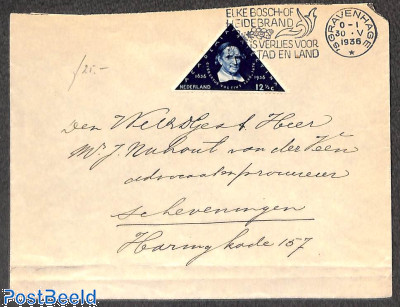 ELKE BOSCH-OF
HEIDEBRAND
IS VERLIES VOOR
STAD EN LAND
'SGRAVENHAGE
0-1
30.V
1936
1636 1936
NEDERLAND 12½ c
f 25.-
Den WelEdGestr Heer
Mr J. Nuhout van der Veen
advocaat en procureur
Scheveningen
Haringkade 157
PostBeeld
PostBeeld